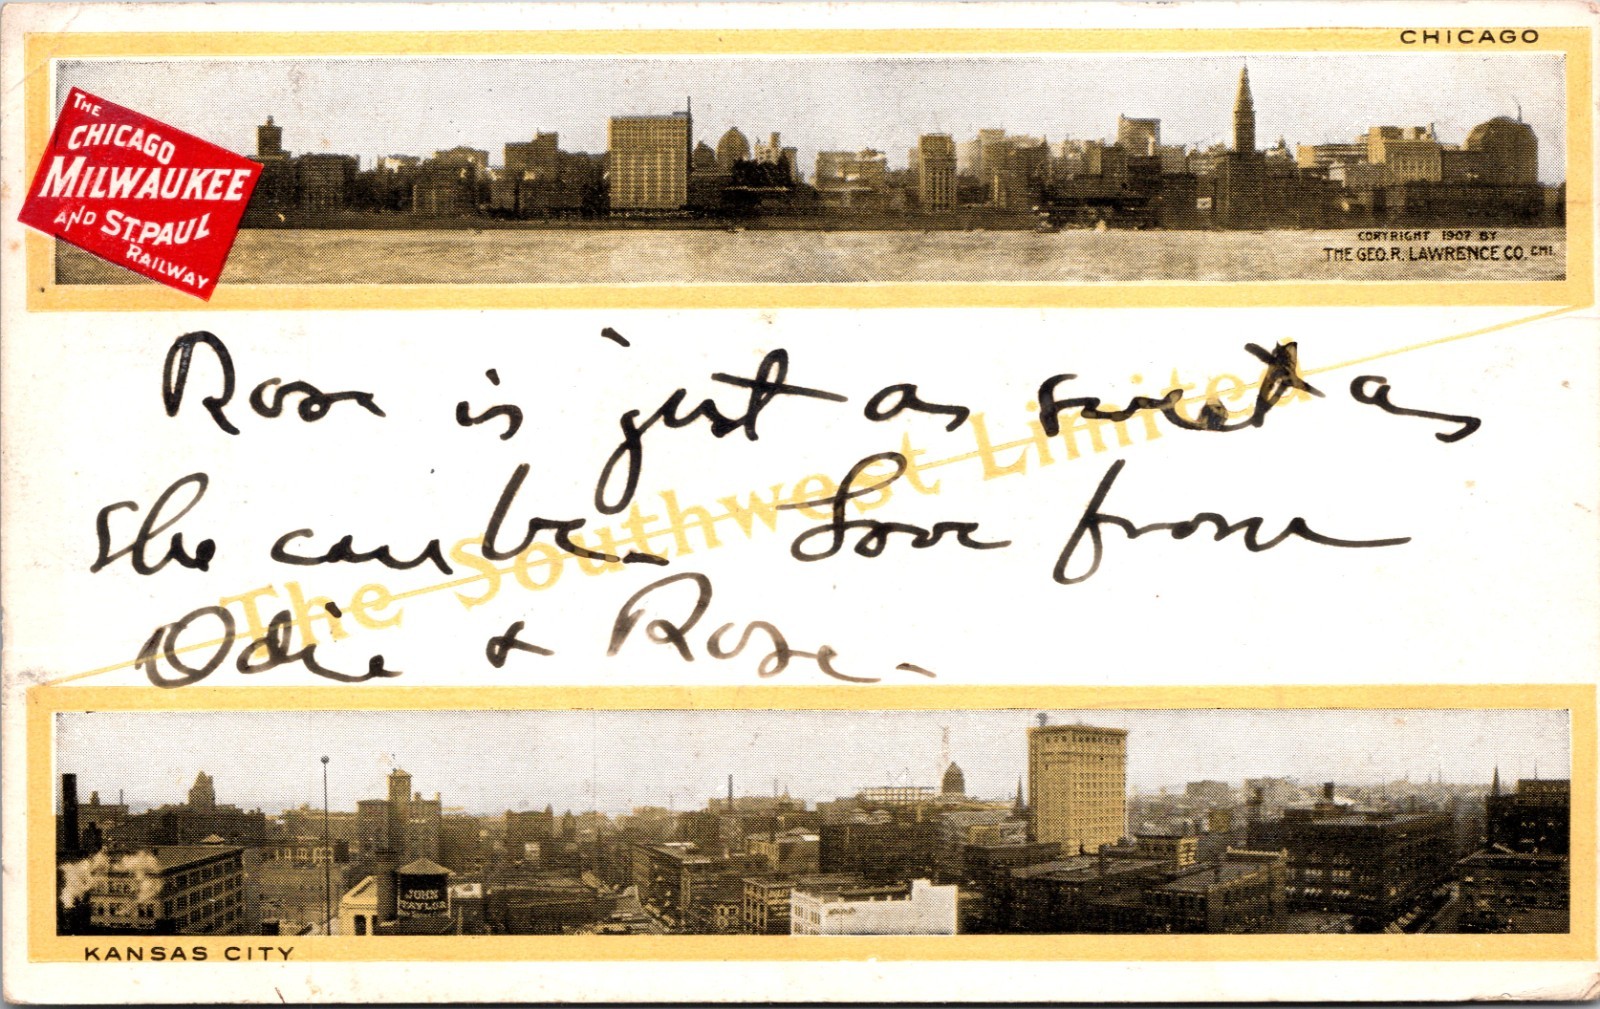 CHICAGO
THE
CHICAGO
MILWAUKEE
AND ST. PAUL
RAILWAY
COPYRIGHT 1907 BY
THE GEO. R. LAWRENCE CO. CHI.
Rose is just as sweet as
she can be. Love from
Odie & Rose.
The Southwest Limited
JOHN
TAYLOR
KANSAS CITY